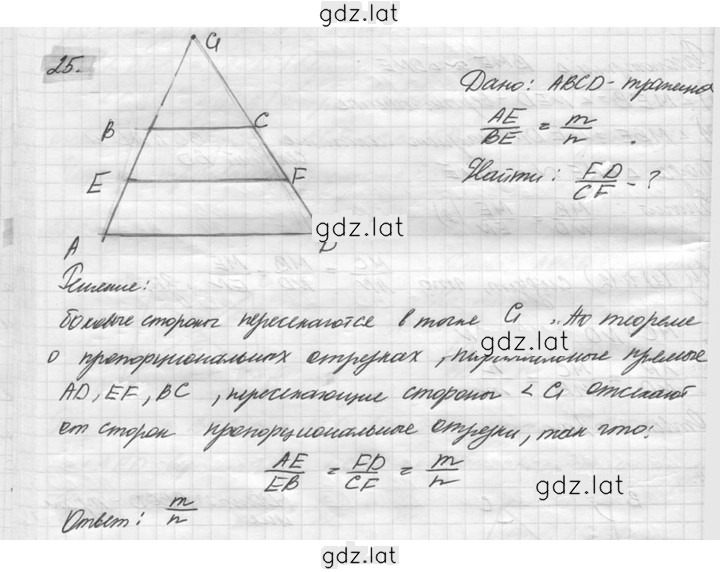 gdz.lat
25.
G
B
C
E
F
A
Дано: ABCD - трапеция
AE/BE = m/n.
Найти: FD/CF - ?
gdz.lat
Решение:
боковые стороны пересекаются в точке G. По теореме
gdz.lat
о пропорциональных отрезках, параллельные прямые
AD, EF, BC, пересекающие стороны ∠G отсекают
от сторон пропорциональные отрезки, так что:
AE/EB = FD/CF = m/n
gdz.lat
Ответ: m/n
gdz.lat